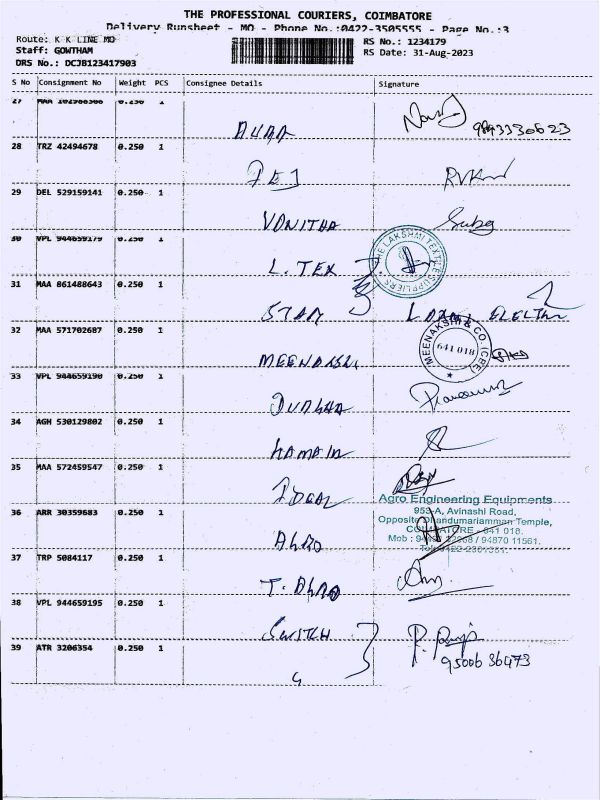 THE PROFESSIONAL COURIERS, COIMBATORE
Delivery Runsheet - MO - Phone No.:0422-3505555 - Page No.:3
Route: K K LINE MO
RS No.: 1234179
Staff: GOWTHAM
RS Date: 31-Aug-2023
DRS No.: DCJB123417903
S No Consignment No Weight PCS Consignee Details Signature
27 MAA 0.250 1
9893330623
28 TRZ 42494678 0.250 1
29 DEL 529159141 0.250 1
VANITHA Suba
30 VPL 944659179 0.250 1
L. TEX
THE LAKSHMI TEXTILE SUPPLIERS
31 MAA 861488643 0.250 1
STAR
32 MAA 571702687 0.250 1
MEENAKSHI
MEENAKSHI & CO. (CBE)
641 018
33 VPL 944659190 0.250 1
DURGHA
34 AGH 530129802 0.250 1
35 MAA 572459547 0.250 1
IDEAL
Agro Engineering Equipments
953-A, Avinashi Road,
36 ARR 30359683 0.250 1
Opposite Chandumariamman Temple,
COIMBATORE - 641 018.
AGRO
Mob : / 94870 11561.
37 TRP 5084117 0.250 1
T. AGRO
38 VPL 944659195 0.250 1
SWITCH
39 ATR 3206354 0.250 1
9500636473